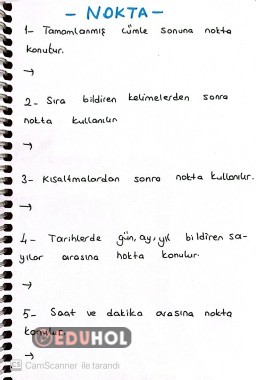 - NOKTA -
1- Tamamlanmış cümle sonuna nokta
konulur.
→
2- Sıra bildiren kelimelerden sonra
nokta kullanılır
→
3- Kısaltmalardan sonra nokta kullanılır.
→
4- Tarihlerde gün, ay, yıl bildiren sa-
yılar arasına nokta konulur.
→
5- Saat ve dakika arasına nokta
konulur.
EDUHOL
→
CS CamScanner ile tarandı